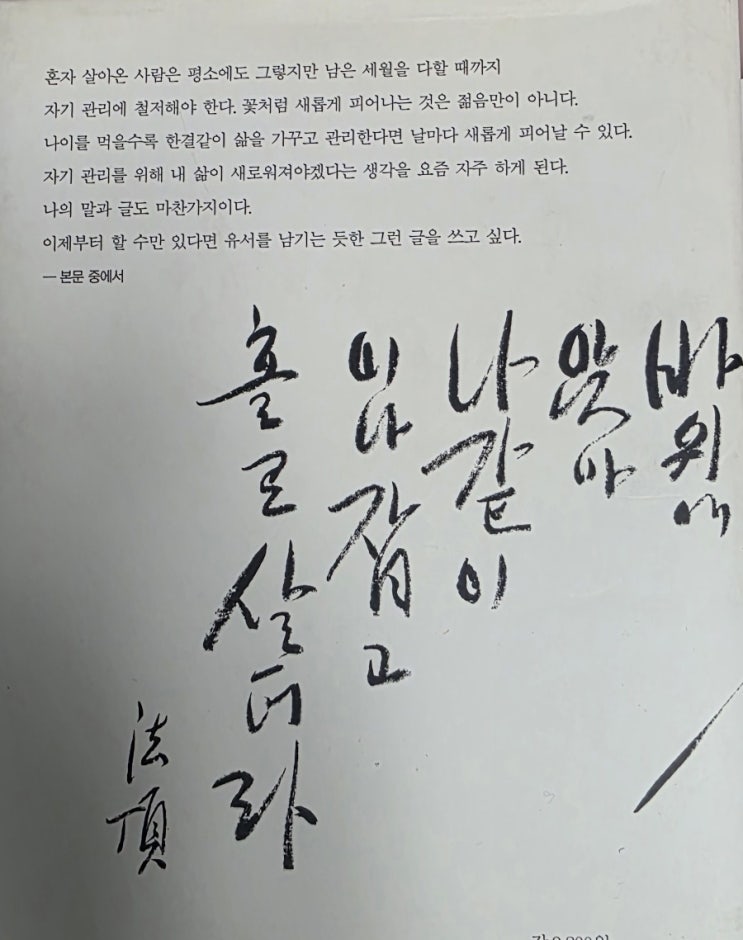 혼자 살아온 사람은 평소에도 그렇지만 남은 세월을 다할 때까지
자기 관리에 철저해야 한다. 꽃처럼 새롭게 피어나는 것은 젊음만이 아니다.
나이를 먹을수록 한결같이 삶을 가꾸고 관리한다면 날마다 새롭게 피어날 수 있다.
자기 관리를 위해 내 삶이 새로워져야겠다는 생각을 요즘 자주 하게 된다.
나의 말과 글도 마찬가지이다.
이제부터 할 수만 있다면 유서를 남기는 듯한 그런 글을 쓰고 싶다.
— 본문 중에서
바위에
앉아
나같이
잡고
홀로 살더라
法頂